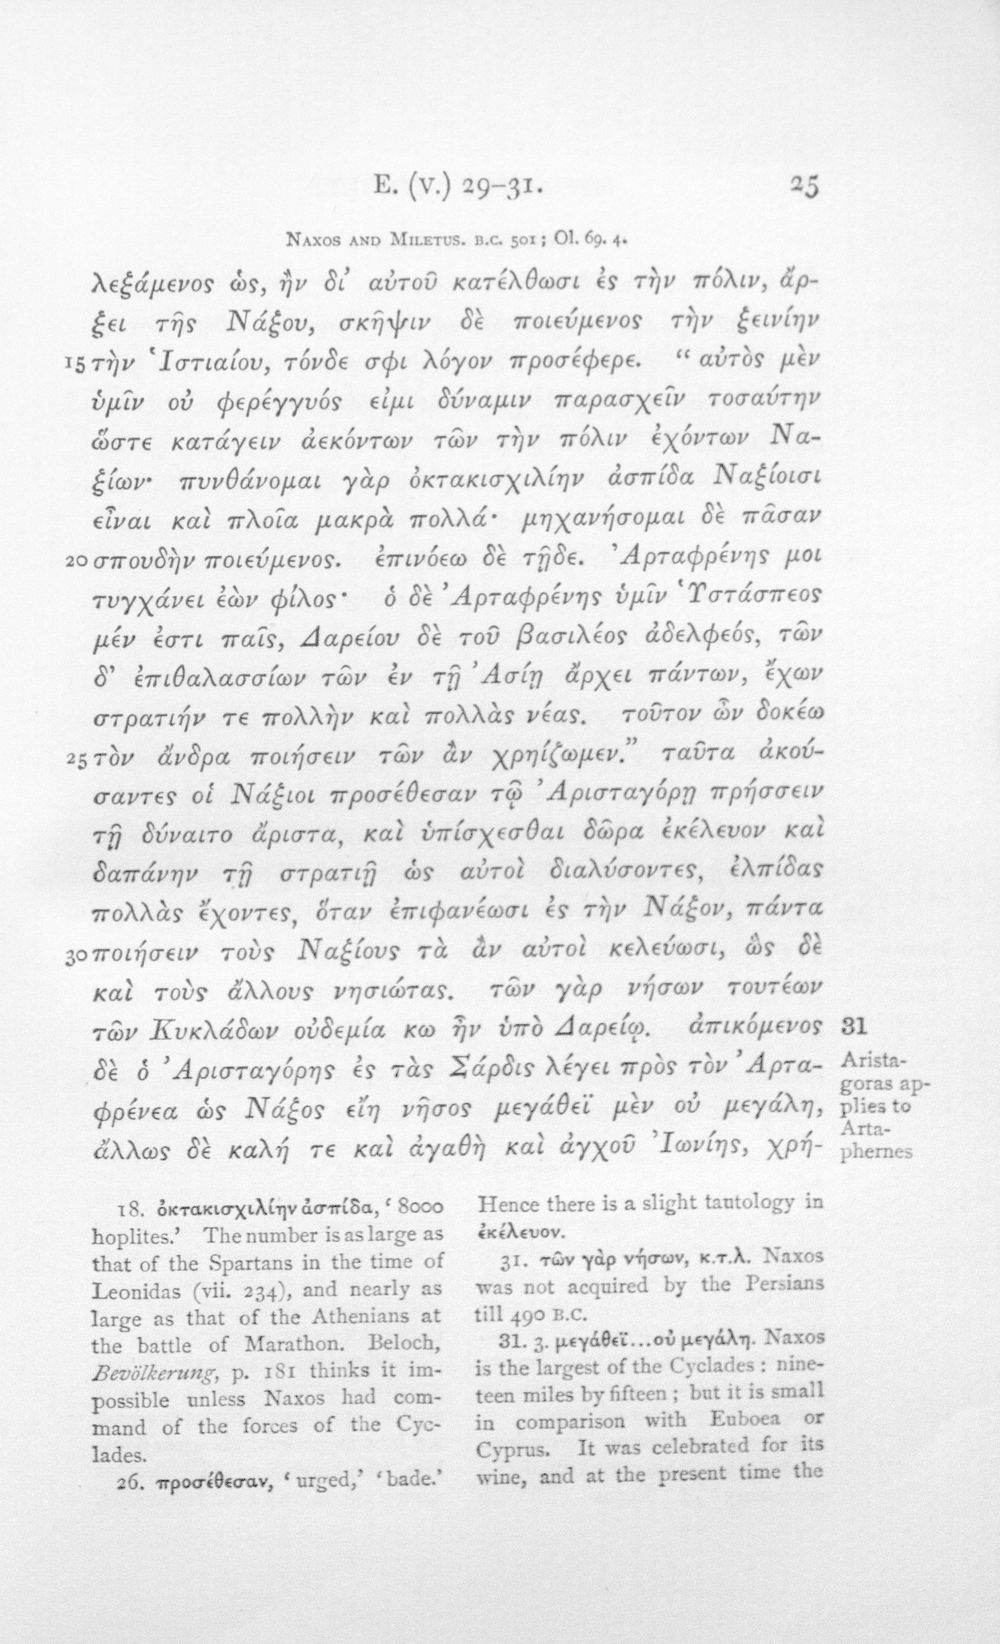 E. (V.) 29–31. 25
NAXOS AND MILETUS. B.C. 501; Ol. 69. 4.
λεξάμενος ὡς, ἢν δι’ αὐτοῦ κατέλθωσι ἐς τὴν πόλιν, ἄρ-
ξει τῆς Νάξου, σκῆψιν δὲ ποιεύμενος τὴν ξεινίην
15 τὴν Ἱστιαίου, τόνδε σφι λόγον προσέφερε. “αὐτὸς μὲν
ὑμῖν οὐ φερέγγυός εἰμι δύναμιν παρασχεῖν τοσαύτην
ὥστε κατάγειν ἀεκόντων τῶν τὴν πόλιν ἐχόντων Να-
ξίων· πυνθάνομαι γὰρ ὀκτακισχιλίην ἀσπίδα Ναξίοισι
εἶναι καὶ πλοῖα μακρὰ πολλά· μηχανήσομαι δὲ πᾶσαν
20 σπουδὴν ποιεύμενος. ἐπινόεω δὲ τῇδε. Ἀρταφρένης μοι
τυγχάνει ἐὼν φίλος· ὁ δὲ Ἀρταφρένης ὑμῖν Ὑστάσπεος
μέν ἐστι παῖς, Δαρείου δὲ τοῦ βασιλέος ἀδελφεός, τῶν
δ’ ἐπιθαλασσίων τῶν ἐν τῇ Ἀσίῃ ἄρχει πάντων, ἔχων
στρατιήν τε πολλὴν καὶ πολλὰς νέας. τοῦτον ὦν δοκέω
25 τὸν ἄνδρα ποιήσειν τῶν ἂν χρηίζωμεν.” ταῦτα ἀκού-
σαντες οἱ Νάξιοι προσέθεσαν τῷ Ἀρισταγόρῃ πρήσσειν
τῇ δύναιτο ἄριστα, καὶ ὑπίσχεσθαι δῶρα ἐκέλευον καὶ
δαπάνην τῇ στρατιῇ ὡς αὐτοὶ διαλύσοντες, ἐλπίδας
πολλὰς ἔχοντες, ὅταν ἐπιφανέωσι ἐς τὴν Νάξον, πάντα
30 ποιήσειν τοὺς Ναξίους τὰ ἂν αὐτοὶ κελεύωσι, ὣς δὲ
καὶ τοὺς ἄλλους νησιώτας. τῶν γὰρ νήσων τουτέων
τῶν Κυκλάδων οὐδεμία κω ἦν ὑπὸ Δαρείῳ. ἀπικόμενος 31
δὲ ὁ Ἀρισταγόρης ἐς τὰς Σάρδις λέγει πρὸς τὸν Ἀρτα-
φρένεα ὡς Νάξος εἴη νῆσος μεγάθεϊ μὲν οὐ μεγάλη,
ἄλλως δὲ καλή τε καὶ ἀγαθὴ καὶ ἀγχοῦ Ἰωνίης, χρή-
Arista-
goras ap-
plies to
Arta-
phernes
18. ὀκτακισχιλίην ἀσπίδα, ‘8000
hoplites.’ The number is as large as
that of the Spartans in the time of
Leonidas (vii. 234), and nearly as
large as that of the Athenians at
the battle of Marathon. Beloch,
Bevölkerung, p. 181 thinks it im-
possible unless Naxos had com-
mand of the forces of the Cyc-
lades.
26. προσέθεσαν, ‘urged,’ ‘bade.’
Hence there is a slight tautology in
ἐκέλευον.
31. τῶν γὰρ νήσων, κ.τ.λ. Naxos
was not acquired by the Persians
till 490 B.C.
31. 3. μεγάθεϊ...οὐ μεγάλη. Naxos
is the largest of the Cyclades: nine-
teen miles by fifteen; but it is small
in comparison with Euboea or
Cyprus. It was celebrated for its
wine, and at the present time the